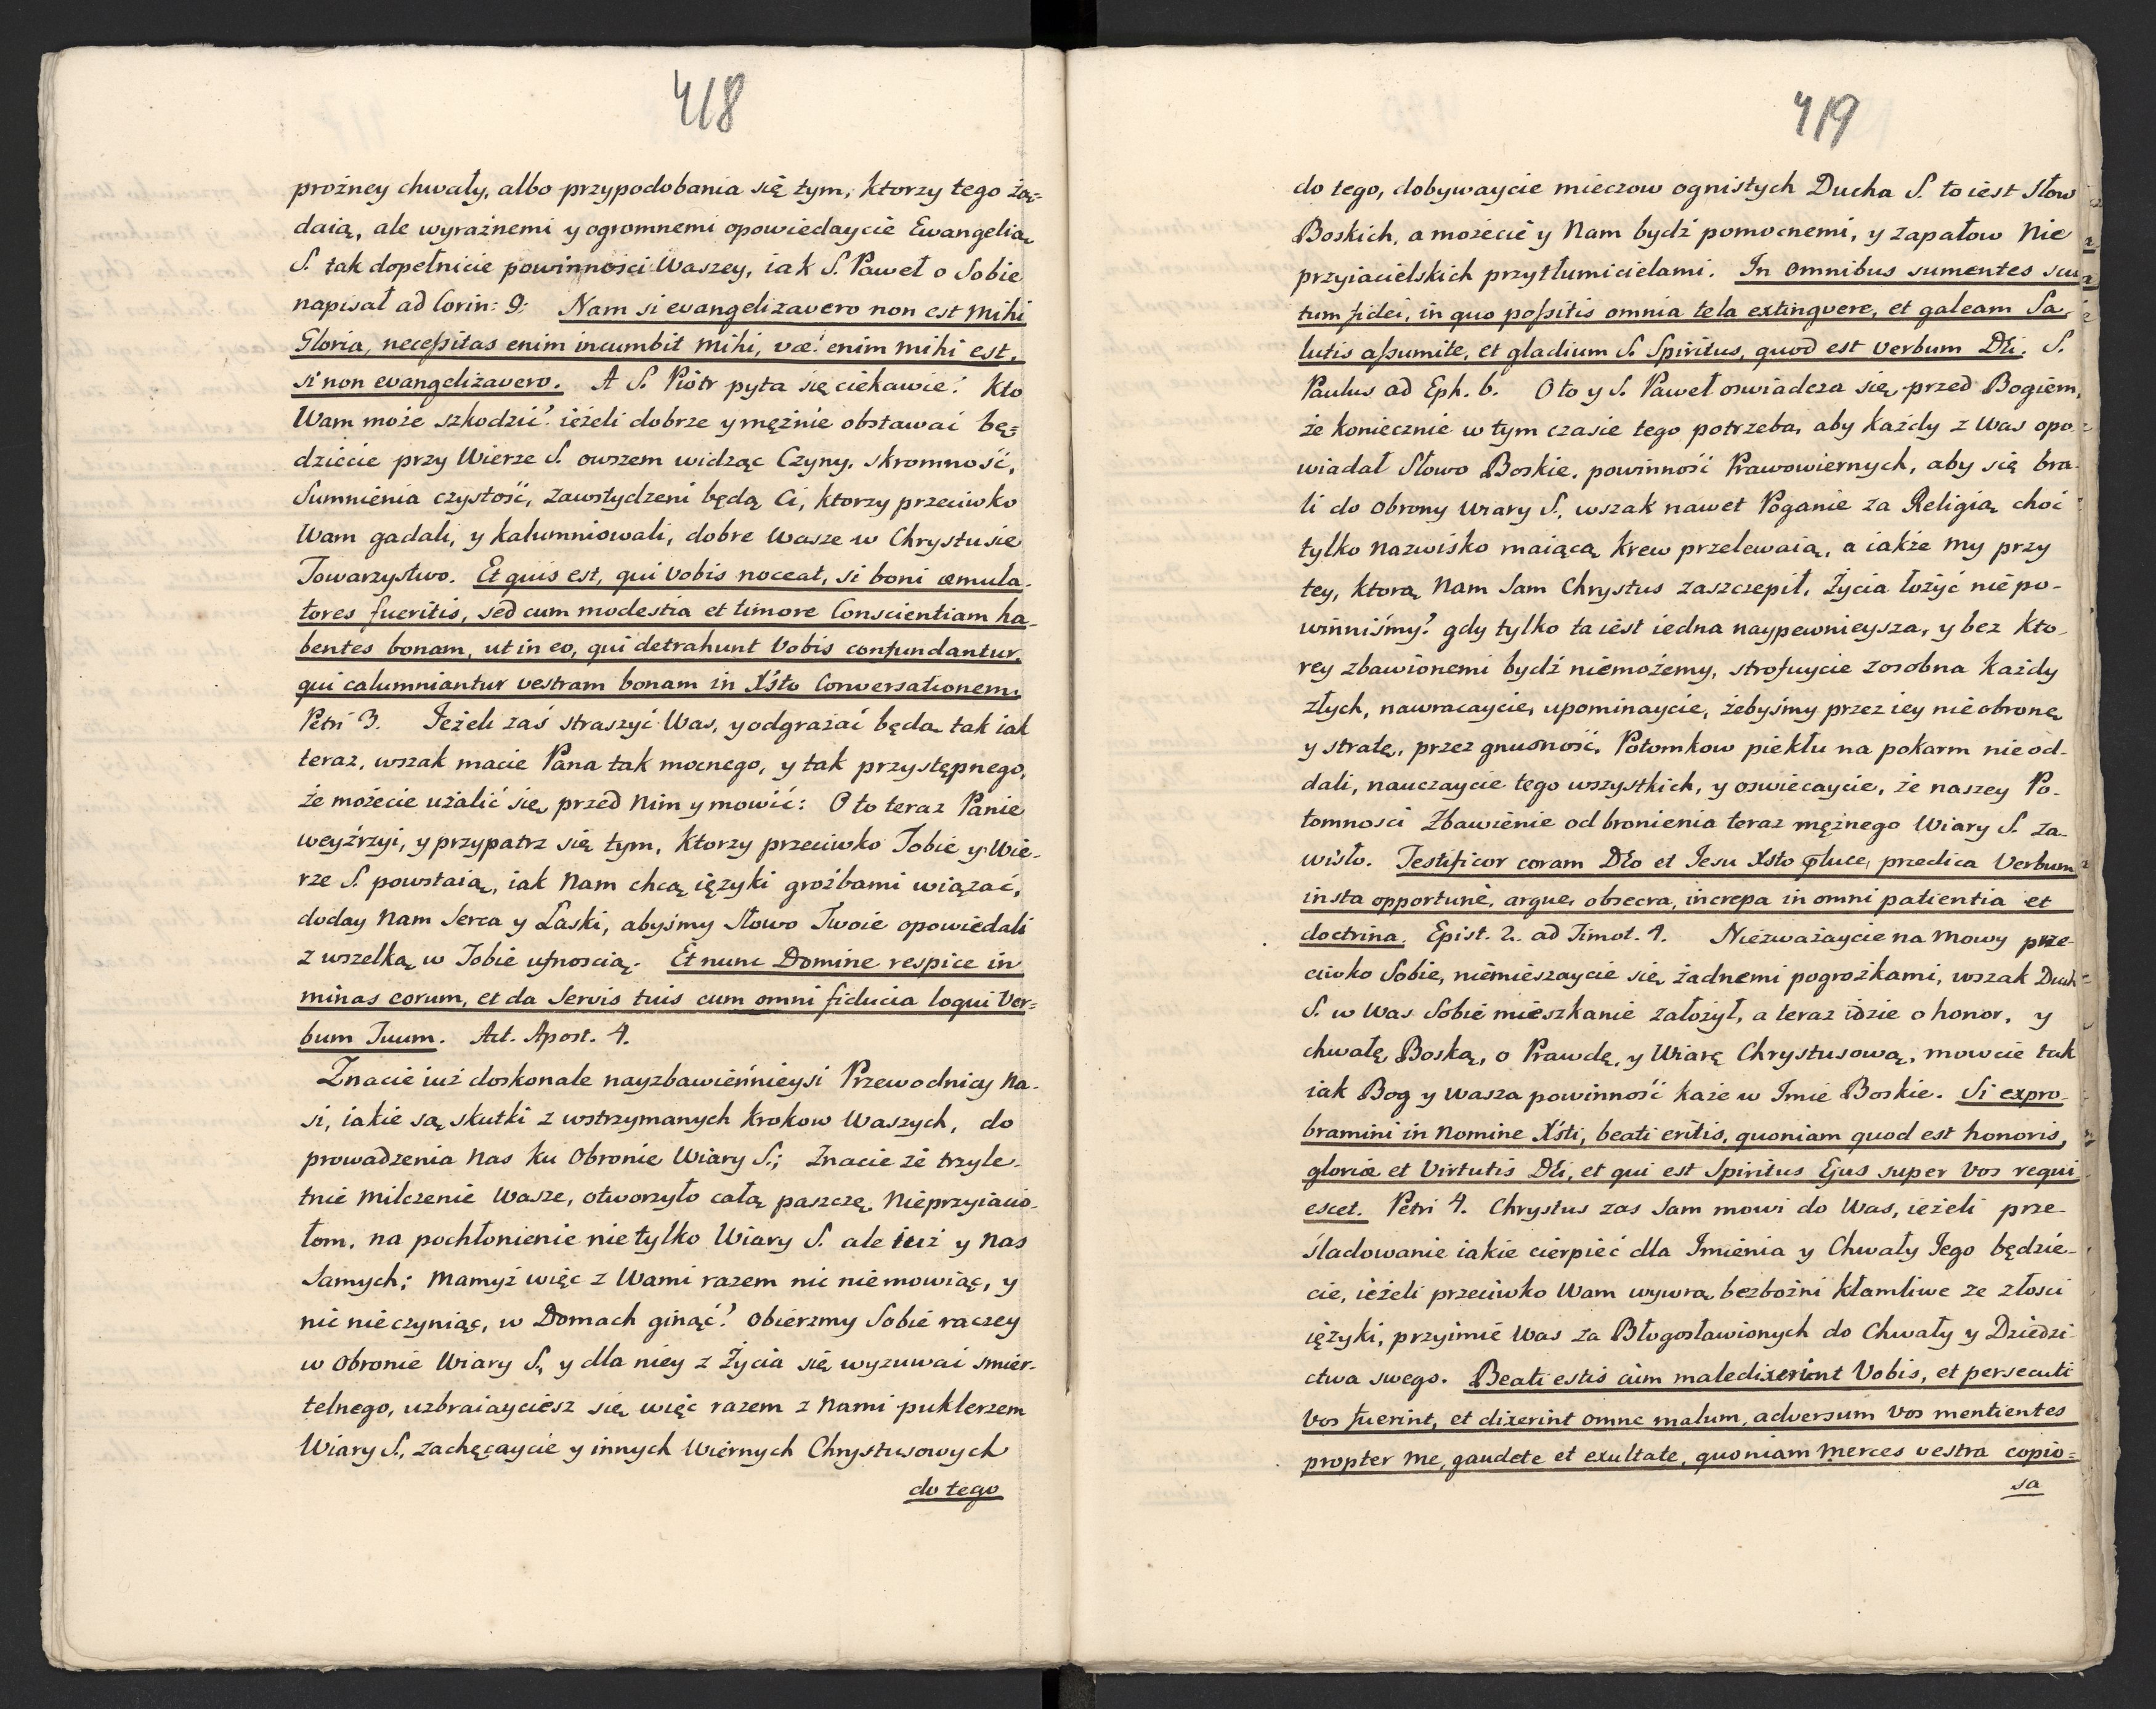 418
prożney chwały, albo przypodobania się tym, ktorzy tego żą=
daią, ale wyrażnemi y ogromnemi opowiedaycie Ewangelią
S. tak dopełnicie powinnosci Waszey, iak S. Paweł o Sobie
napisał ad Corin: 9: Nam si evangelizavero non est mihi
Gloria, necessitas enim incumbit mihi, væ! enim mihi est,
si non evangelizavero. A S. Piotr pyta się ciekawie: Kto
Wam może szkodzić? ieżeli dobrze y mężnie obstawać bę=
dziecie przy Wierze S. owszem widząc Czyny, skromność,
Sumnienia czystość, zawstydzeni będą Ci, ktorzy przeciwko
Wam gadali, y kalumniowali, dobre Wasze w Chrystusie
Towarzystwo. Et quis est, qui Vobis noceat, si boni æmula-
tores fueritis, sed cum modestia et timore Conscientiam ha-
bentes bonam, ut in eo, qui detrahunt Vobis confundantur,
qui calumniantur vestram bonam in X'sto Conversationem.
Petri 3. Jeżeli zaś straszyć Was, y odgrażać będą tak iak
teraz, wszak macie Pana tak mocnego, y tak przystępnego,
że możecie użalić się przed Nim y mowić: Oto teraz Panie
weyźrzyi, y przypatrz się tym, Ktorzy przeciwko Tobie y Wie-
rze S. powstaią, iak Nam chcą ięzyki groźbami wiązać,
doday Nam Serca y Łaski, abyśmy Słowo Twoie opowiedali
z wszelką w Tobie ufnoscią. Et nunc Domine respice in
minas eorum, et da Servis tuis cum omni fiducia loqui Ver=
bum Tuum. Act. Apost. 4.
Znacie iuż doskonale nayzbawiennieysi Przewodnicy Na-
si, iakie są skutki z wstrzymanych krokow Waszych, do
prowadzenia Nas ku Obronie Wiary S.; Znacie że trzyle-
tnie milczenie Wasze, otworzyło całą paszczę Nieprzyiacio-
łom, na pochłonienie nie tylko Wiary S. ale iuż y Nas
Samych; Mamyż więc z Wami razem nic nie mowiąc, y
nic nie czyniąc, w Domach ginąć? Obierzmy Sobie raczey
w Obronie Wiary S., y dla niey z Życia się wyzuwać smier-
telnego, uzbraiayciesz się więc razem z Nami puklerzem
Wiary S., zachęcaycie y innych Wiernych Chrystusowych
do tego
419
do tego, dobywaycie mieczow ognistych Ducha S. to iest Słow
Boskich, a możecie y Nam bydź pomocnemi, y zapałow Nie
przyiacielskich przytłumicielami. In omnibus sumentes scu
tum fidei, in quo possitis omnia tela extinguere, et galeam Sa-
lutis assumite, et gladium S. Spiritus, quod est verbum DEi. S.
Paulus ad Eph. 6. Oto y S. Paweł oswiadcza się przed Bogiem,
że koniecznie w tym czasie tego potrzeba, aby każdy z Was opo-
wiadał Słowo Boskie, powinność Prawowiernych, aby się bra-
li do Obrony Wiary S., wszak nawet Poganie za Religią choć
tylko Nazwisko maiącą krew przelewaią, a iakże my przy
tey, ktorą Nam Sam Chrystus zaszczepił, Życia łożyć nie po-
winniśmy? gdy tylko ta iest iedna naypewnieysza, y bez kto-
rey zbawionemi bydź niemożemy, strofuycie zosobna każdy
złych, nawracaycie, upominaycie, żebyśmy przez iey nieobronę
y stratę, przez gnusność, Potomkow piekłu na pokarm nie od-
dali, nauczaycie tego wszystkich, y oswiecaycie, że naszey Po-
tomnosci Zbawienie od bronienia teraz mężnego Wiary S. za-
wisło. Testificor coram DEo et Jesu Xsto, prædica Verbum
insta opportunè, argue, obsecra, increpa in omni patientia et
doctrina. Epist. 2. ad Timot. 4. Niezważaycie na Mowy prze-
ciwko Sobie, niemieszaycie się żadnemi pogrożkami, wszak Duch
S. w Was Sobie mieszkanie założył, a teraz idzie o honor, y
chwałę Boską, o Prawdę, y Wiarę Chrystusową, mowcie tak
iak Bog y Wasza powinność każe w Imie Boskie. Si expro-
bramini in Nomine X'sti, beati eritis, quoniam quod est honoris,
gloriæ et Virtutis DEi, et qui est Spiritus Ejus super Vos requi
escet. Petri 4. Chrystus zas Sam mowi do Was, ieżeli prze-
śladowanie iakie cierpieć dla Imienia y Chwały Jego będzie-
cie, ieżeli przeciwko Wam wywrą bezbożni kłamliwe ze złosci
ięzyki, przyimie Was za Błogosławionych do Chwały y Dziedzi-
ctwa swego. Beati estis cùm maledixerint Vobis, et persecuti
Vos fuerint, et dixerint omne malum, adversum Vos mentientes
propter me, gaudete et exultate, quoniam merces vestra copio=
sa